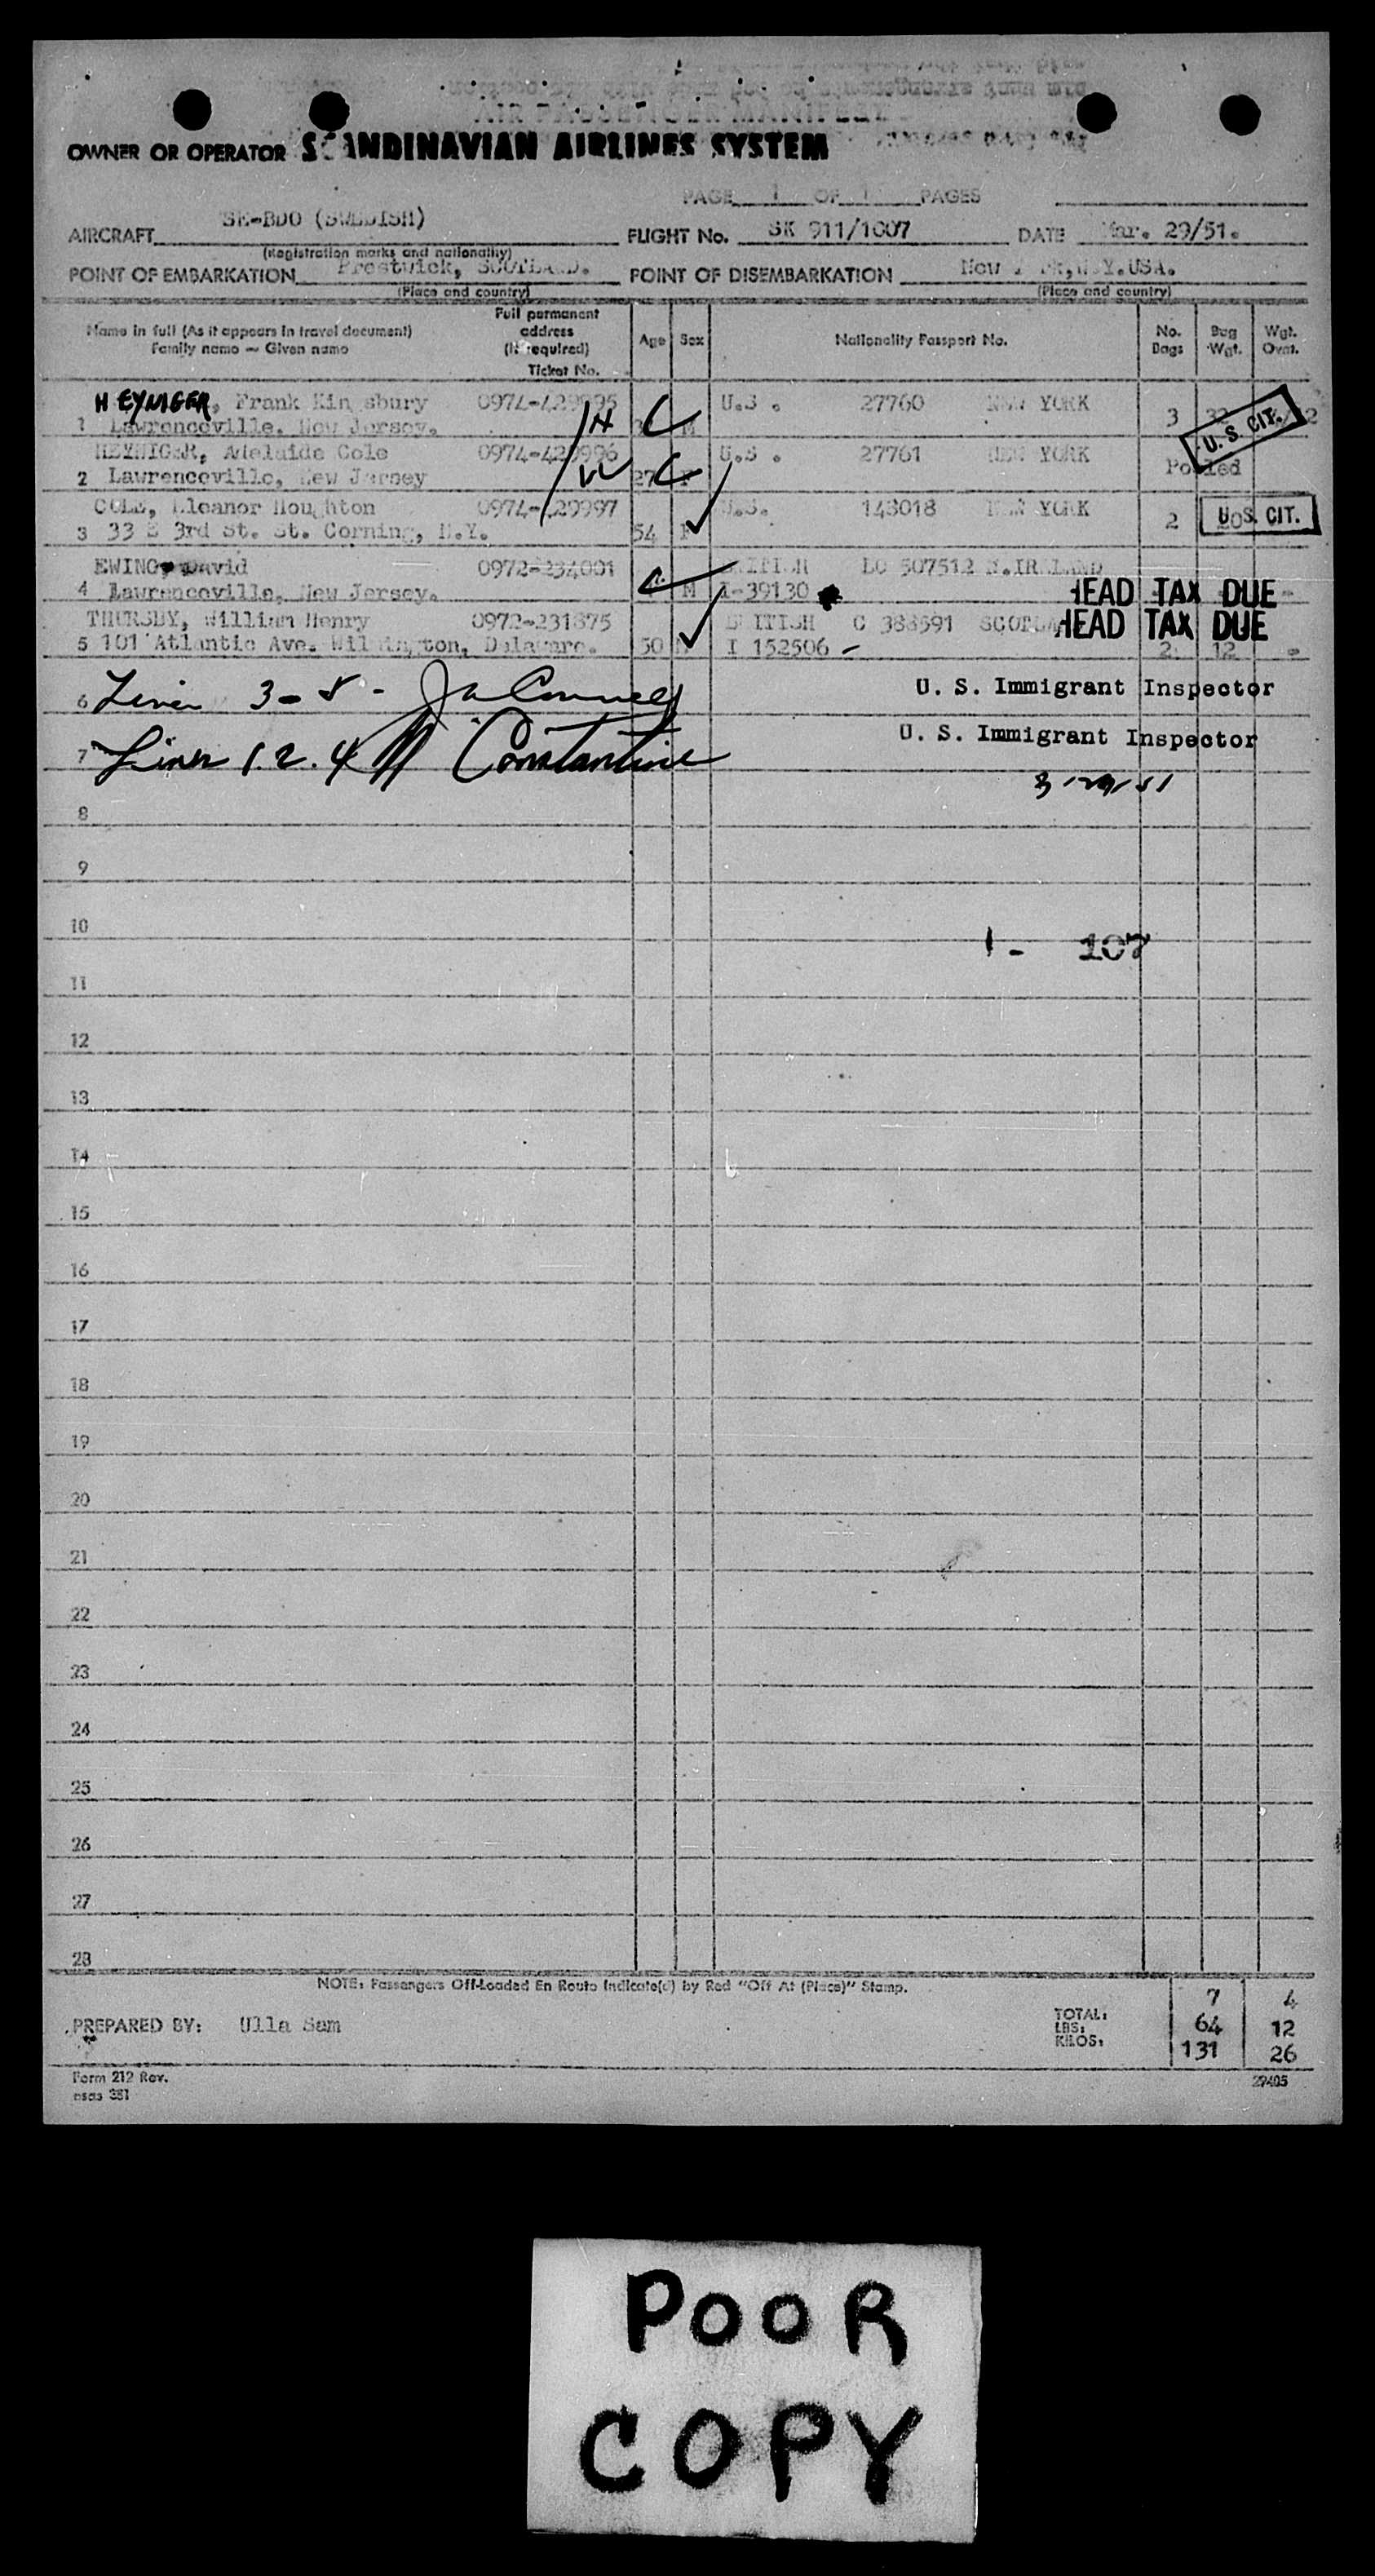 AIR PASSENGER MANIFEST
OWNER OR OPERATOR SCANDINAVIAN AIRLINES SYSTEM
PAGE 1 OF 1 PAGES
AIRCRAFT SE-BDO (SWEDISH) FLIGHT No. SK 911/1007 DATE Mar. 29/51.
(Registration marks and nationality)
POINT OF EMBARKATION Prestwick, SCOTLAND. POINT OF DISEMBARKATION New York, N.Y. USA.
(Place and country) (Place and country)
Name in full (As it appears in travel document) Family name — Given name Full permanent address (If required) Ticket No. Age Sex Nationality Passport No. No. Bags Bag Wgt. Wgt. Ovnt.
HEYNIGER, Frank Kingsbury 0974-429995 U.S. 27760 NEW YORK
1 Lawrenceville, New Jersey. H C M 3 32 U. S. CIT.
HEYNIGER, Adelaide Cole 0974-429996 U.S. 27761 NEW YORK
2 Lawrenceville, New Jersey W 27 C F Pooled
COLE, Eleanor Houghton 0974-429997 U.S. 143018 NEW YORK
3 33 E 3rd St. St. Corning, N.Y. 54 F 2 20 U. S. CIT.
EWING, David 0972-234001 BRITISH LO 507512 N.IRELAND
4 Lawrenceville, New Jersey. M I-39130 HEAD TAX DUE -
THURSBY, William Henry 0972-231875 BRITISH C 388591 SCOTLAND HEAD TAX DUE
5 101 Atlantic Ave. Wilmington, Delaware. 50 M I 152506 - 2 12 -
6 Lines 3-5- U. S. Immigrant Inspector
7 Lines 1.2.4 Constantine U. S. Immigrant Inspector
3-29-51
8
9
10 1- 107
11
12
13
14
15
16
17
18
19
20
21
22
23
24
25
26
27
28
NOTE: Passengers Off-Loaded En Route Indicate(d) by Red "Off At (Place)" Stamp.
7 4
PREPARED BY: Ulla Sam TOTAL: LBS: 64 12
KILOS: 131 26
Form 212 Rev.
29405
POOR
COPY